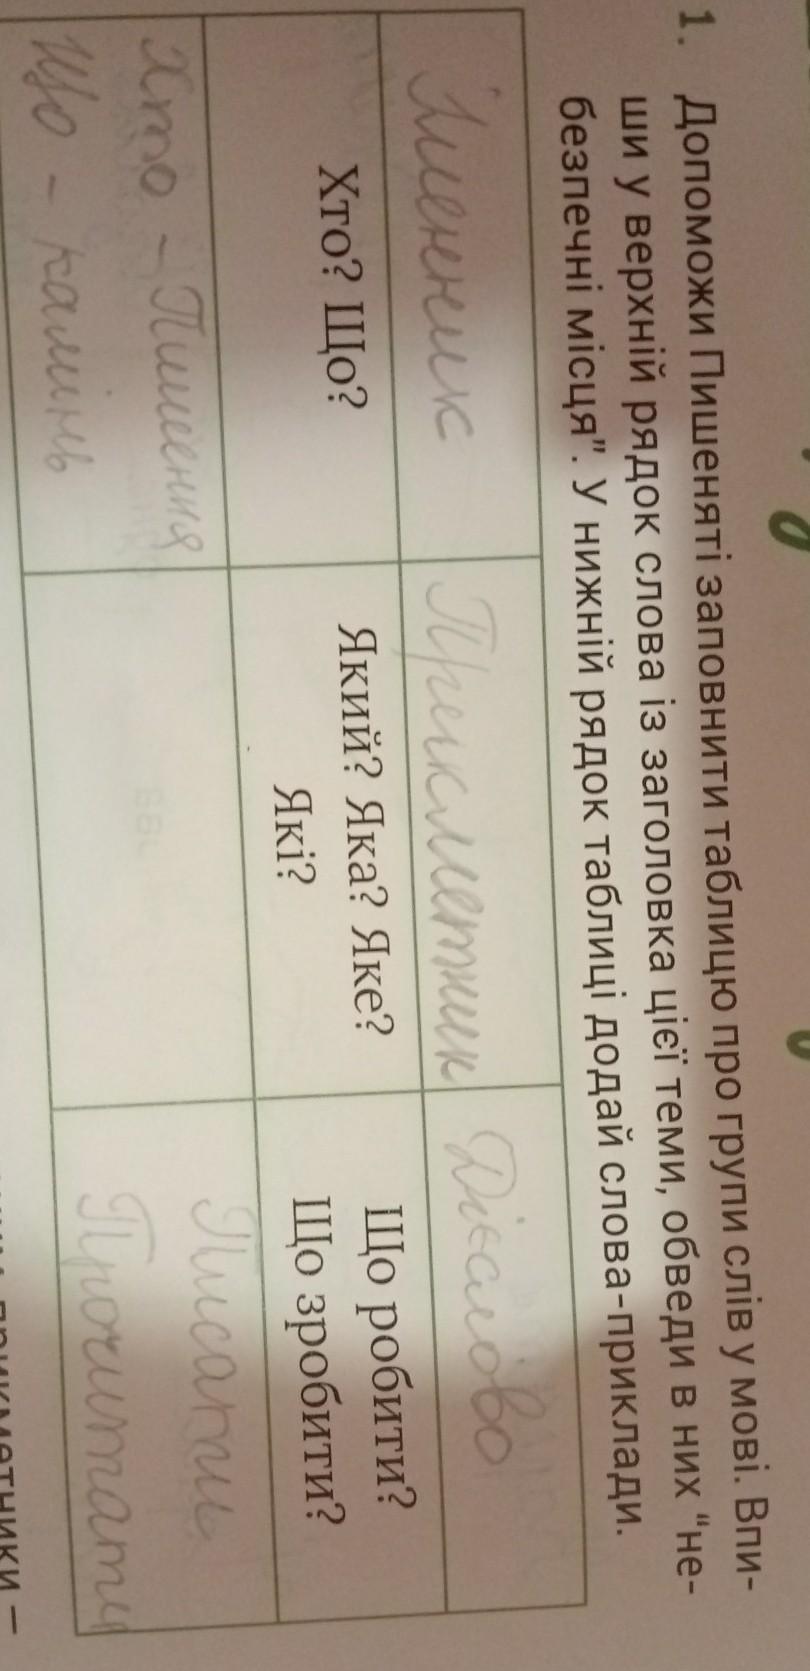 1. Допоможи Пишеняті заповнити таблицю про групи слів у мові. Впи-
ши у верхній рядок слова із заголовка цієї теми, обведи в них "не-
безпечні місця". У нижній рядок таблиці додай слова-приклади.
Іменник
Прикметник
Дієслово
Хто? Що?
Який? Яка? Яке?
Які?
Що робити?
Що зробити?
Хто - Пишеня
Що - камінь
Писати
Прочитати
прикметники –